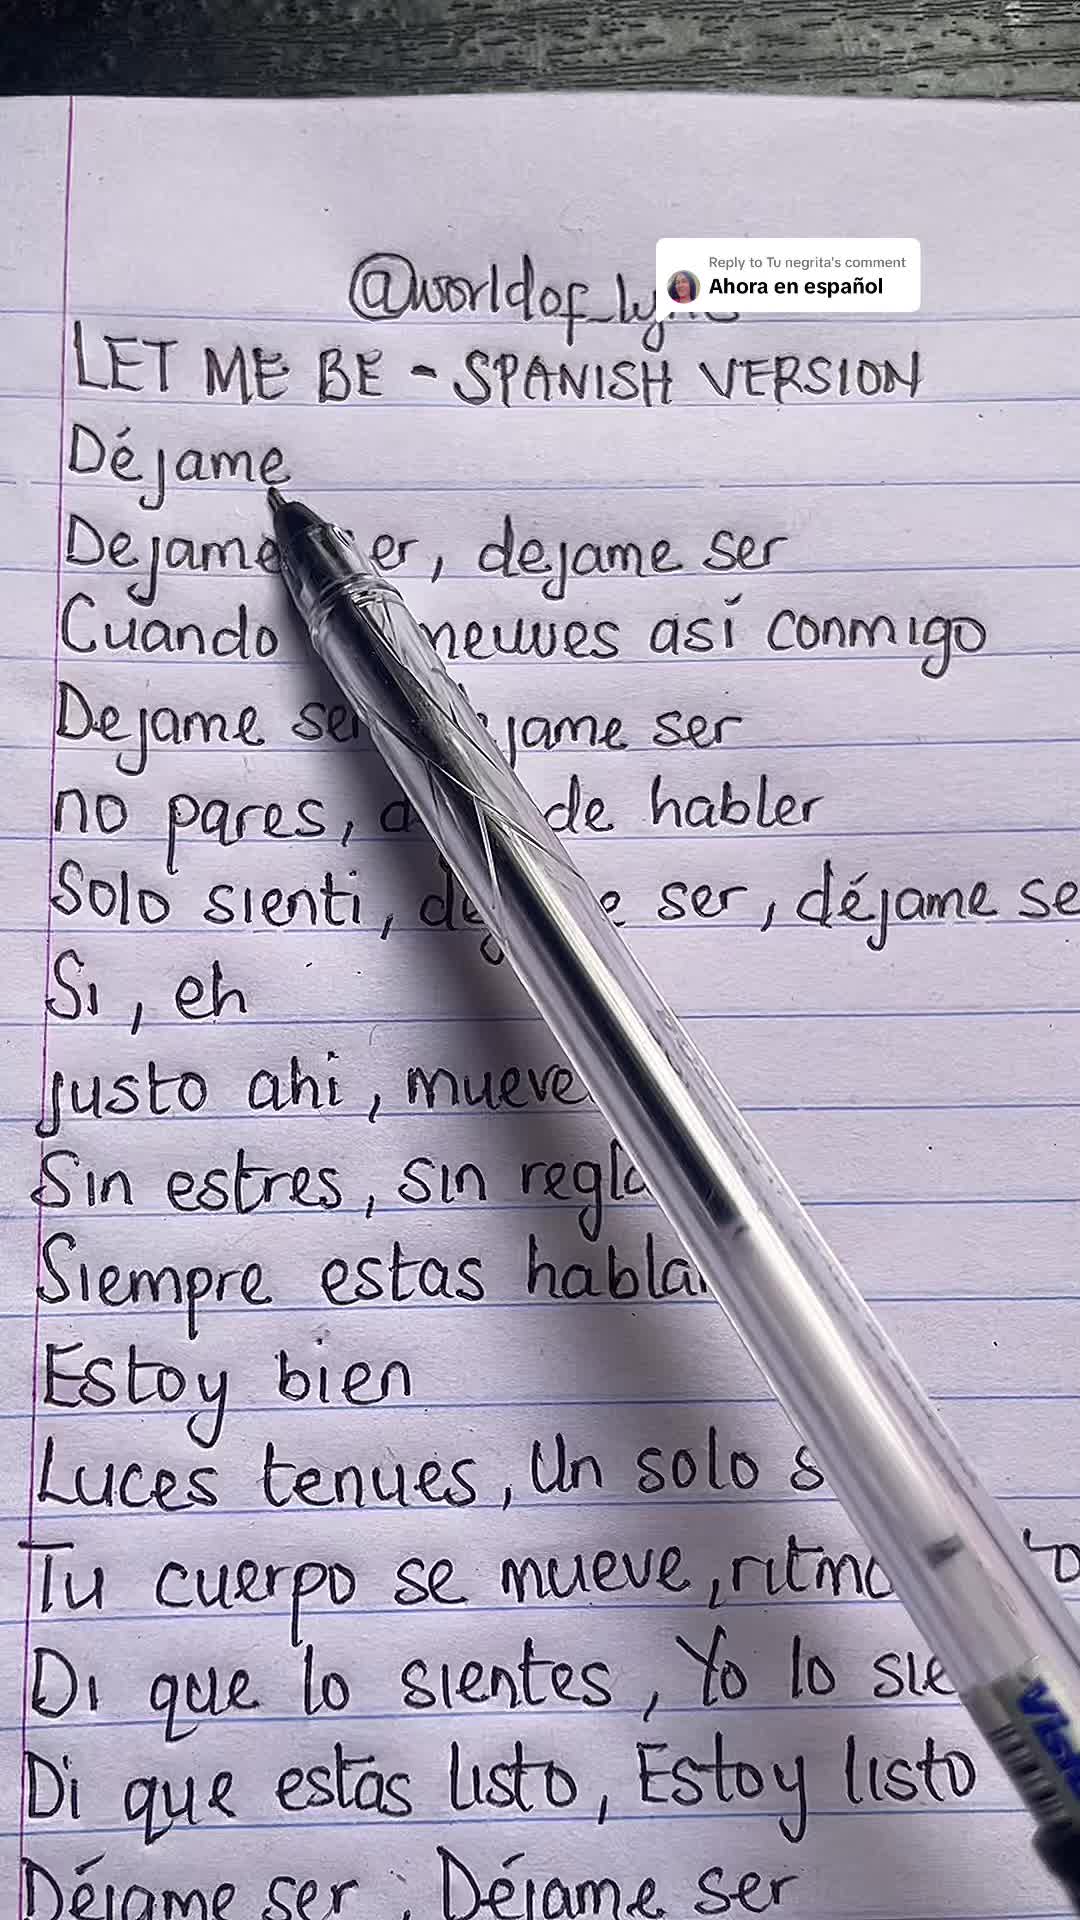 Reply to Tu negrita's comment
Ahora en español
@worldof_ly
LET ME BE - SPANISH VERSION
Déjame
Dejame er, dejame ser
Cuando neuves así conmigo
Dejame ser jame ser
no pares, de habler
Solo sienti, ser, déjame se
Si, eh
justo ahi, mueve
Sin estres, sin regla
Siempre estas habla
Estoy bien
Luces tenues, Un solo s
Tu cuerpo se mueve, ritmo to
Di que lo sientes, Yo lo sie
Di que estas listo, Estoy listo
Déjame ser, Déjame ser